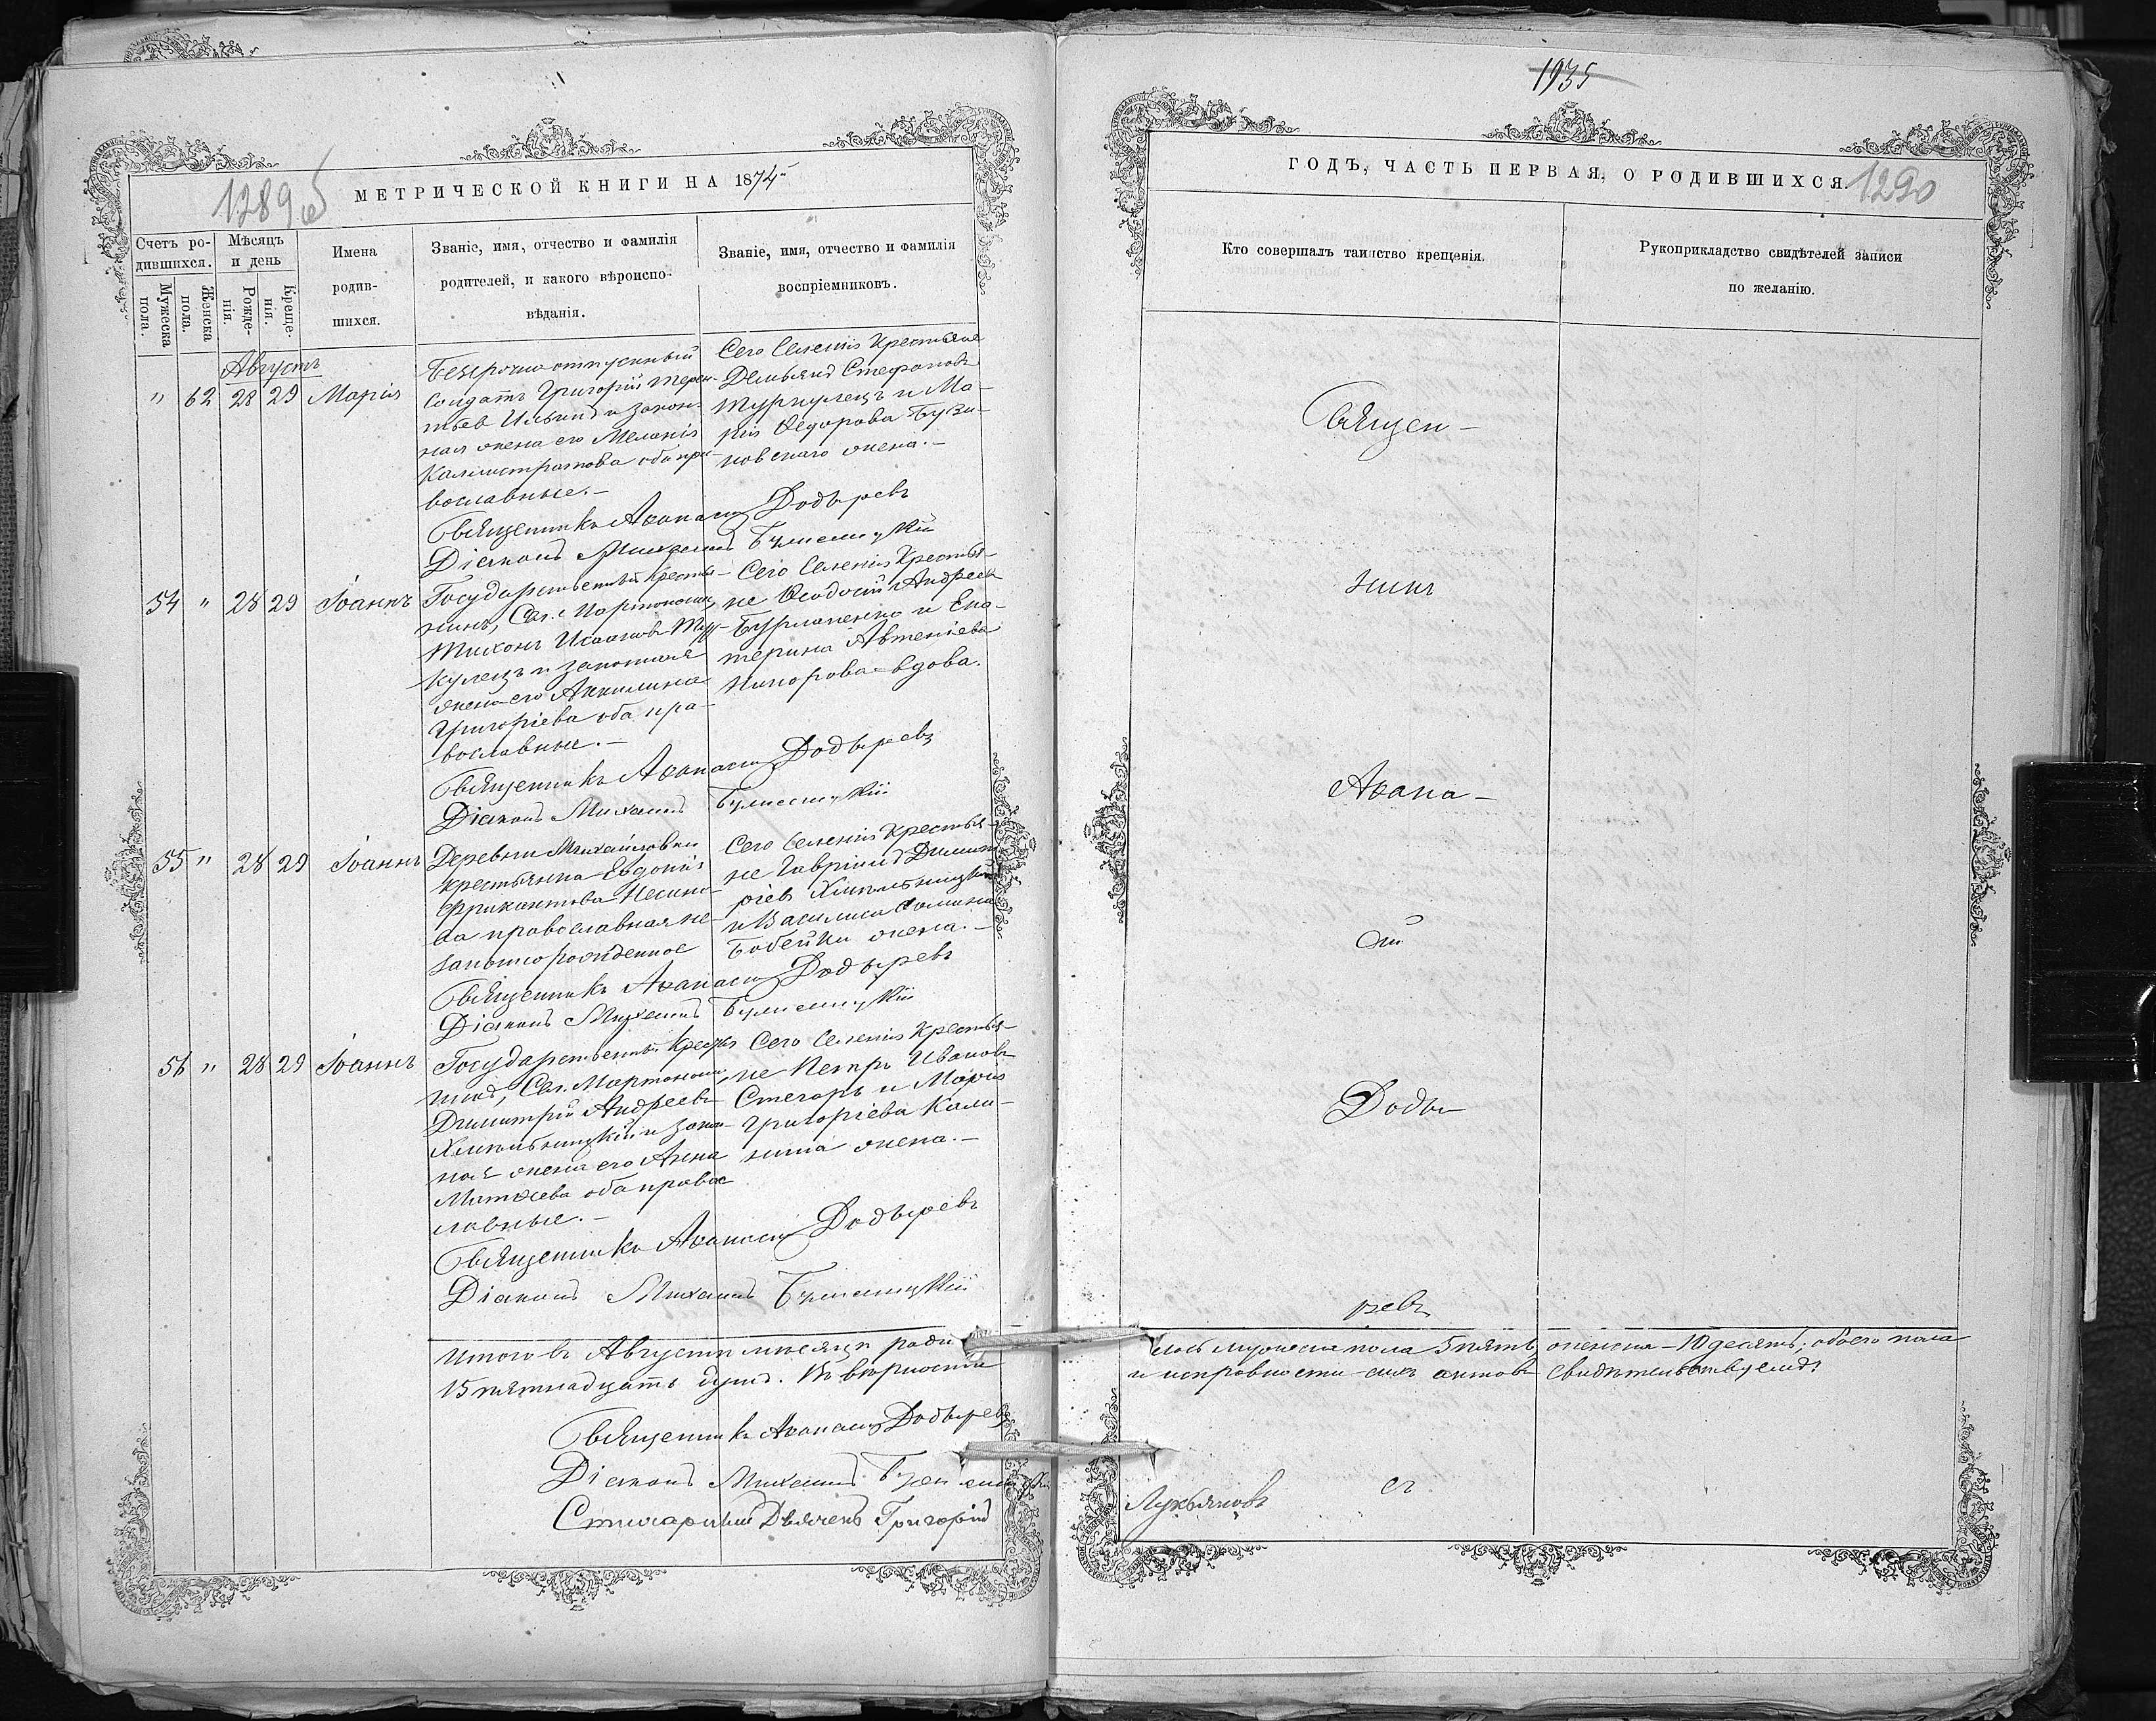 1935
1289
МЕТРИЧЕСКОЙ КНИГИ НА 1874
ГОДЪ, ЧАСТЬ ПЕРВАЯ, О РОДИВШИХСЯ.
1290
Счетъ ро-
дившихся.
Мужеска
пола.
Женска
пола.
Мѣсяцъ
и день
Рожде-
нія.
Креще-
нія.
Имена
родив-
шихся.
Званіе, имя, отчество и фамилія
родителей, и какого вѣроиспо-
вѣданія.
Званіе, имя, отчество и фамилія
воспріемниковъ.
Кто совершалъ таинство крещенія.
Рукоприкладство свидѣтелей записи
по желанію.
Августъ
" 62 28 29 Марія
Безсрочно отпускный
солдатъ Григорій Терен-
тьев Ильинъ и закон-
ная жена его Меланія
Калистратова оба пра-
вославные.-
Сего Селенія Крестьяне
Демьянъ Стефановъ
Туркулецъ и Ма-
рія Ѳедорова Бузи-
новскаго жена.-
Священникъ Аѳанасій Додыревъ
Діаконъ Михаилъ
54 " 28 29 Іоаннъ
Государственный крестья-
нинъ, Сел.
Тихонъ Исааковъ Тур-
кулецъ и законная
жена его Акилина
Григоріева оба пра-
вославные.-
Сего Селенія Крестья-
не Ѳеодосій Андреевъ
Бурлаченко и Ека-
терина Автеніева
вдова.
Священникъ Аѳанасій Додыревъ
Діаконъ Михаилъ
55 " 28 29 Іоаннъ
Деревни Михайловки
крестьянка Евдокія
православная не-
законнорожденное
Сего Селенія Крестья-
не Гавріилъ Димит-
ріевъ Хмельницкій
и Василиса
Бобейки жена.-
Священникъ Аѳанасій Додыревъ
Діаконъ Михаилъ
56 " 28 29 Іоаннъ
Государственный Крестья
нинъ, Сел.
Димитрій Андреевъ
Хмельницкій и закон-
ная жена его Анна
Матѳеева оба право
славные.-
Сего Селенія Крестья-
не Петръ Ивановъ
Стегаръ и Марія
Григоріева Кали-
нина жена.-
Священникъ Аѳанасій Додыревъ
Діаконъ Михаилъ
Священ-
никъ
Аѳана-
сій
Доды-
ревъ
Итого въ Августѣ мѣсяцѣ роди
лось мужеска пола 5 пять, женска - 10 десять; обоего пола
15 пятнадцать душъ. Въ вѣрности
и исправности сихъ актовъ свидѣтельствуемъ:
Священникъ Аѳанасій Додыревъ
Діаконъ Михаилъ
Стихарный Дьячекъ Григорій
Лукьяновъ